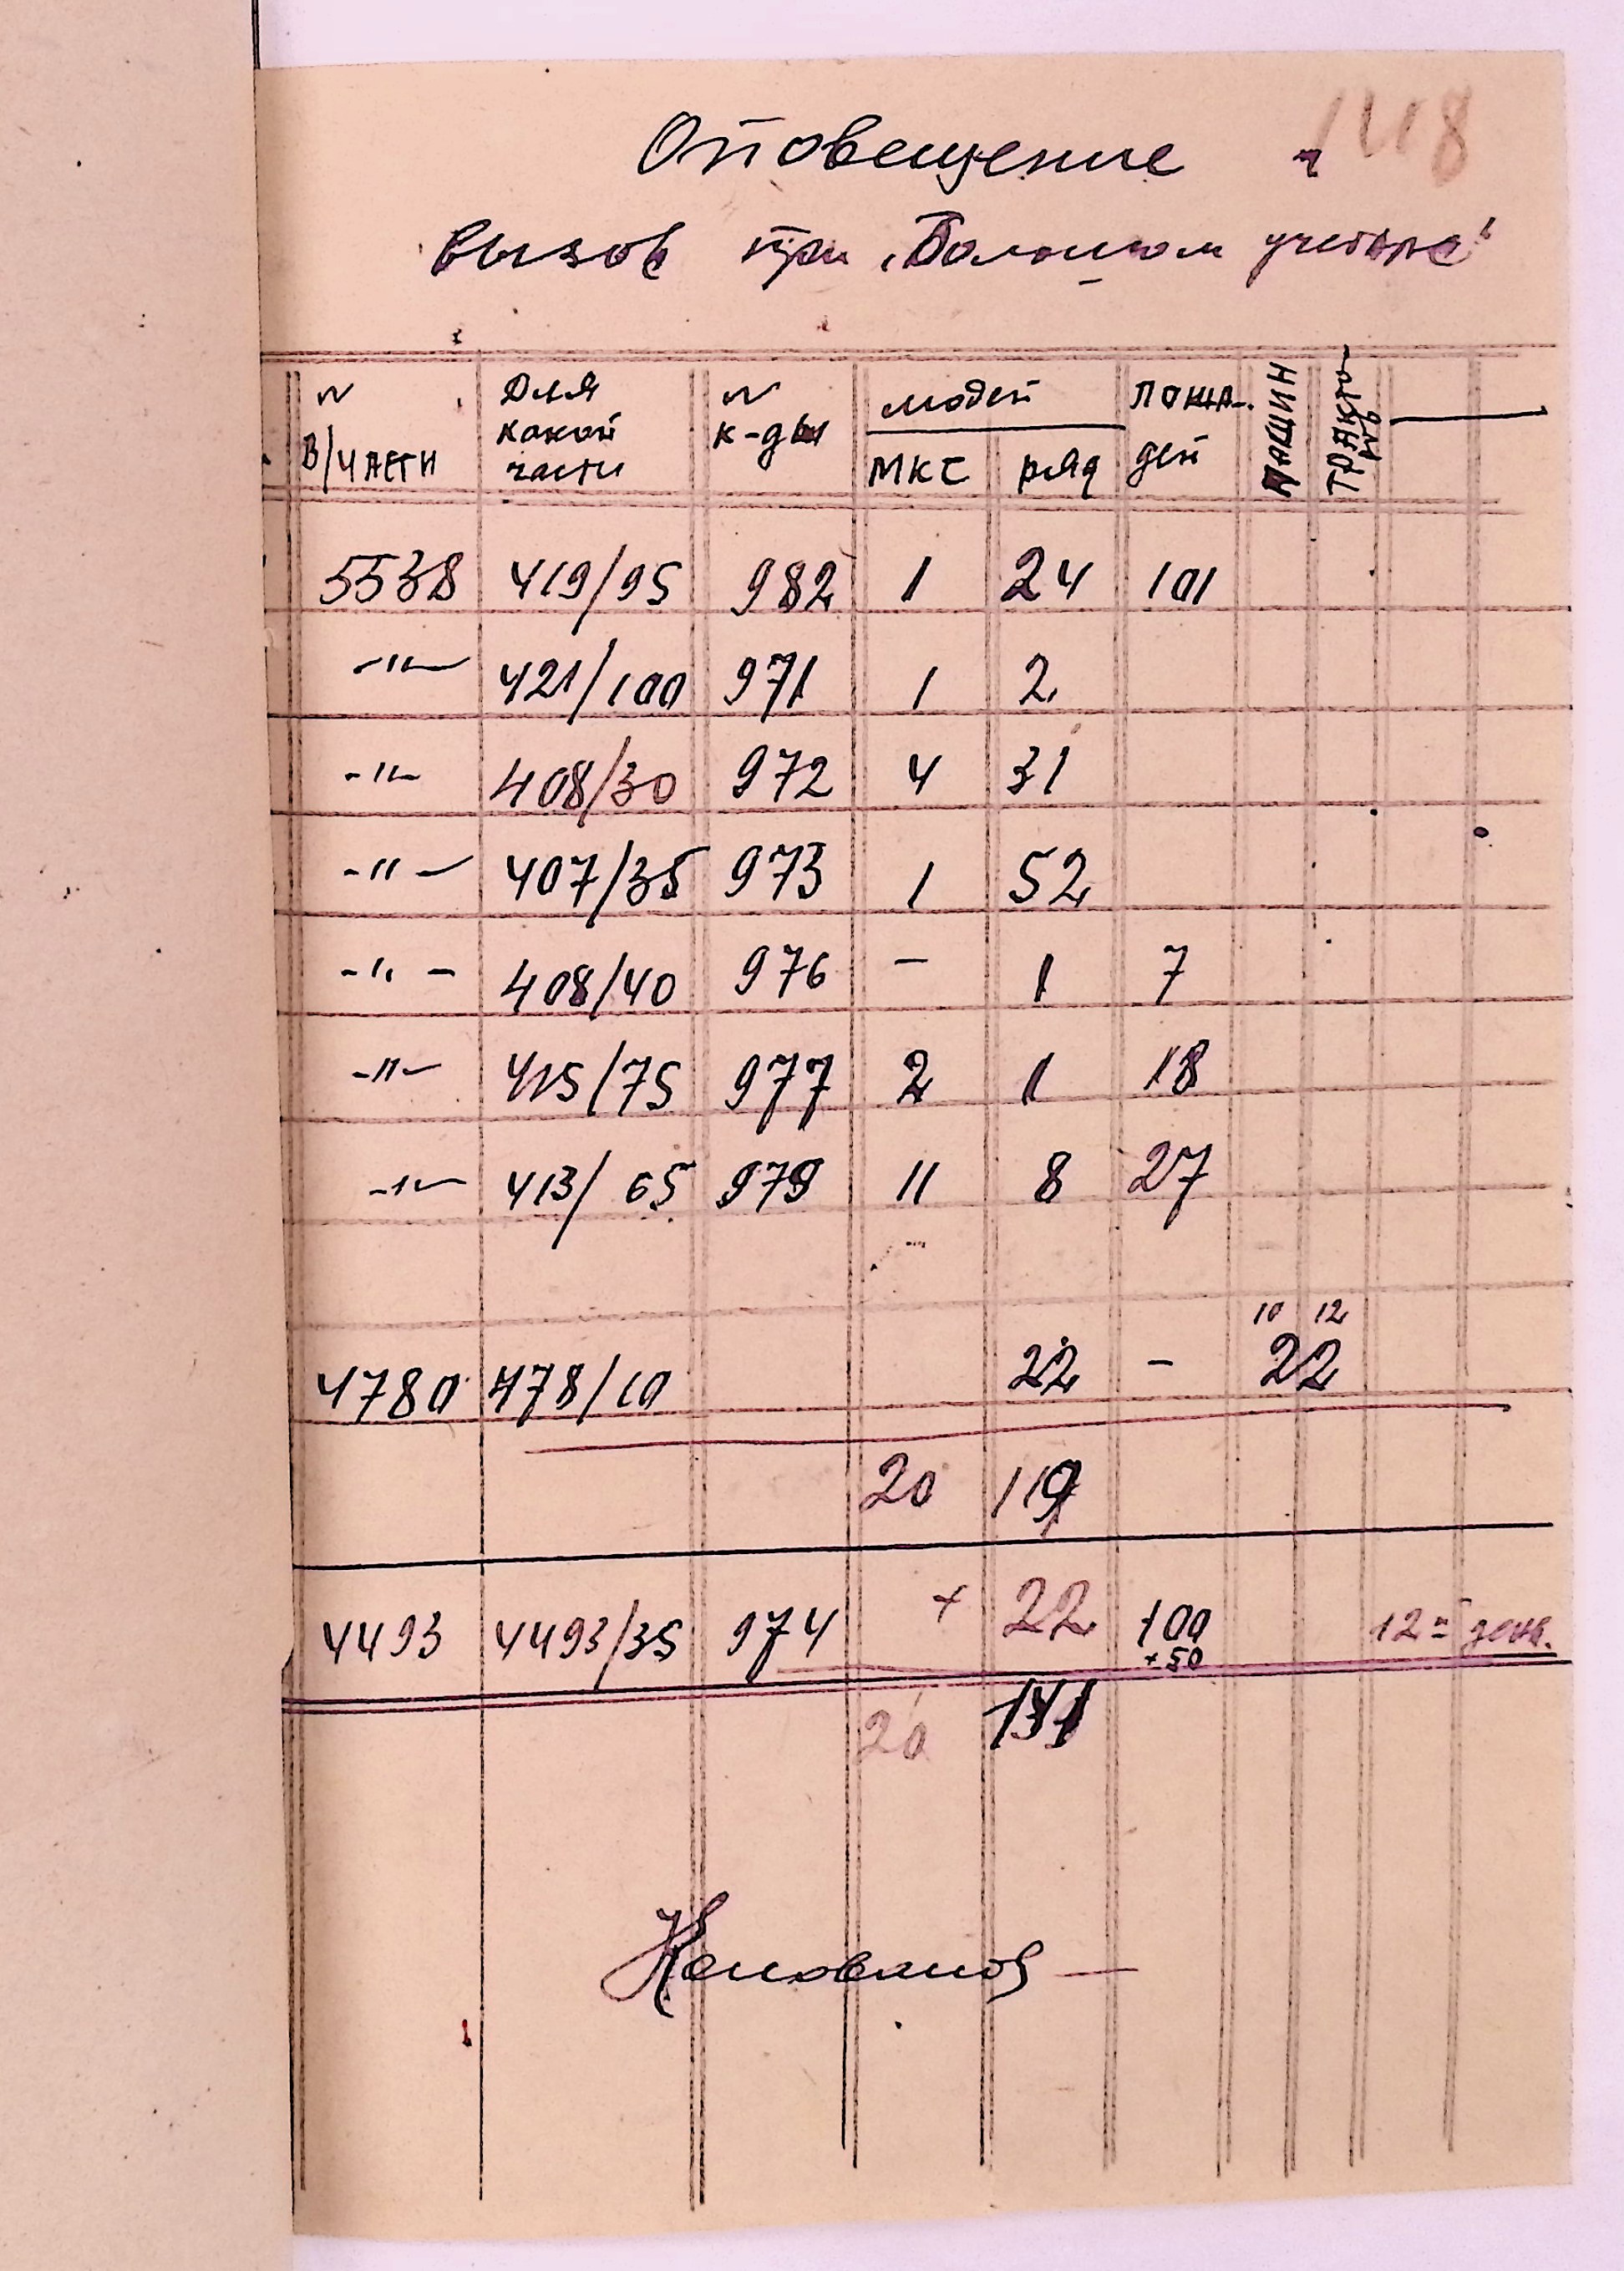 148
Оповещение и
вызов при „Большом учебном"
N в/части Для какой части N к-ды людей МКС ряд лошадей машин тракторов
5538 419/95 982 1 24 101
-"- 421/100 971 1 2
-"- 408/30 972 4 31
-"- 407/35 973 1 52
-"- 408/40 976 - 1 7
-"- 415/75 977 2 1 18
-"- 413/65 979 11 8 27
10 12
4780 478/10 22 - 22
20 119
4493 4493/35 974 + 22 100 12
+50
20 141